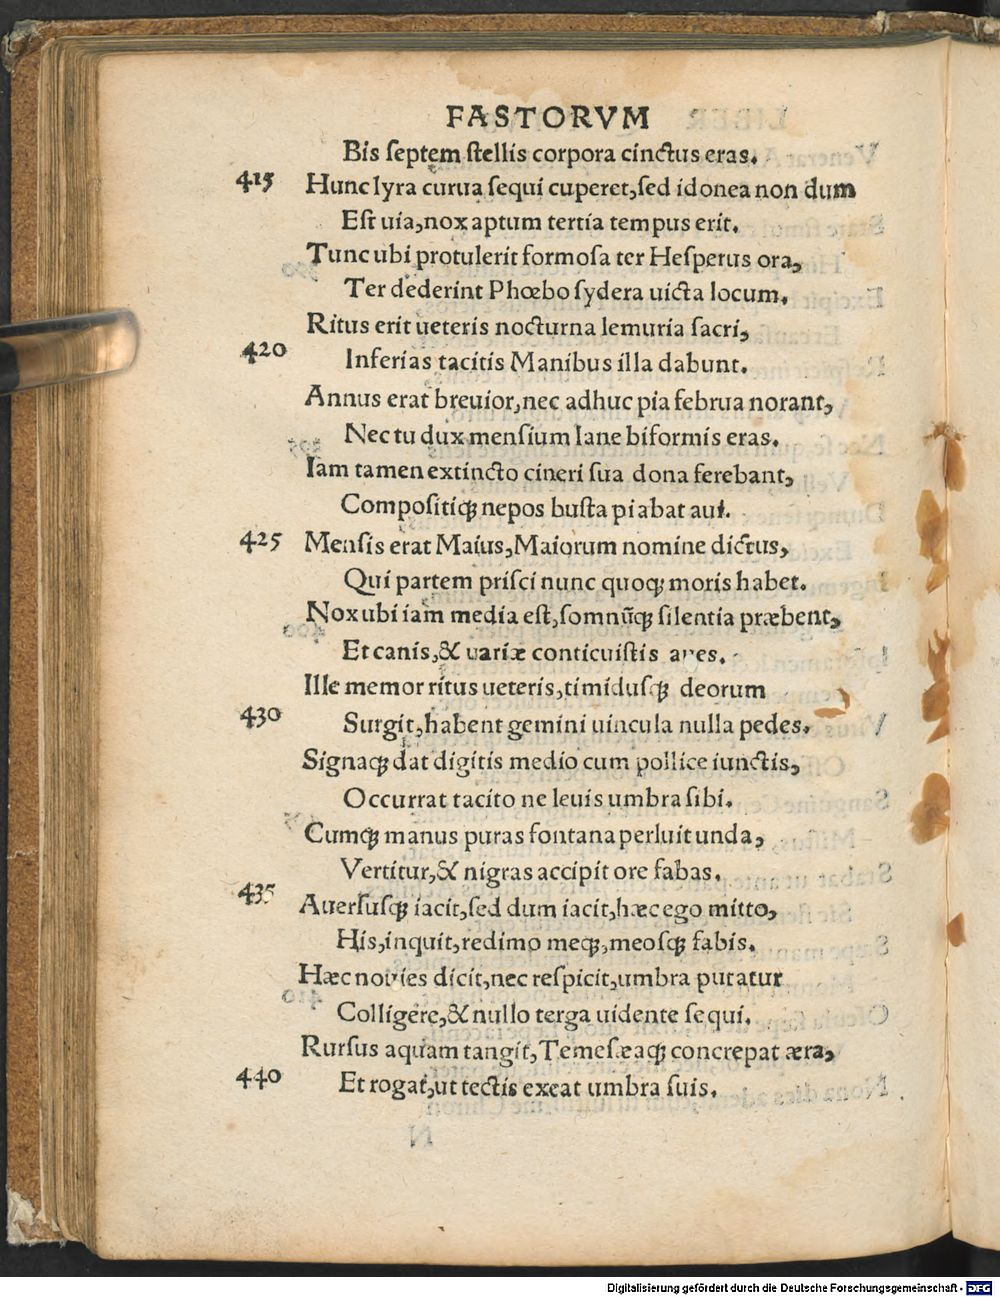 FASTORVM
Bis ſeptem ſtellis corpora cinctus eras.
415 Hunc lyra curua ſequi cuperet, ſed idonea non dum
Eſt uia, nox aptum tertia tempus erit.
Tunc ubi protulerit formoſa ter Heſperus ora,
Ter dederint Phœbo ſydera uicta locum.
Ritus erit ueteris nocturna lemuria ſacri,
420 Inferias tacitis Manibus illa dabunt.
Annus erat breuior, nec adhuc pia februa norant,
Nec tu dux menſium Iane biformis eras.
Iam tamen extincto cineri ſua dona ferebant,
Compoſitiqꝫ nepos buſta piabat aui.
425 Menſis erat Maius, Maiorum nomine dictus,
Qui partem priſci nunc quoqꝫ moris habet.
Nox ubi iam media eſt, ſomnūqꝫ ſilentia præbent,
Et canis, & uariæ conticuiſtis aues.
Ille memor ritus ueteris, timiduſqꝫ deorum
430 Surgit, habent gemini uincula nulla pedes.
Signaqꝫ dat digitis medio cum pollice iunctis,
Occurrat tacito ne leuis umbra ſibi.
Cumqꝫ manus puras fontana perluit unda,
Vertitur, & nigras accipit ore fabas.
435 Auerſuſqꝫ iacit, ſed dum iacit, hæc ego mitto,
His, inquit, redimo meqꝫ, meoſqꝫ fabis.
Hæc nouies dicit, nec reſpicit, umbra putatur
Colligere, & nullo terga uidente ſequi.
Rurſus aquam tangit, Temeſæaqꝫ concrepat æra,
440 Et rogat, ut tectis exeat umbra ſuis.
Digitalisierung gefördert durch die Deutsche Forschungsgemeinschaft - DFG